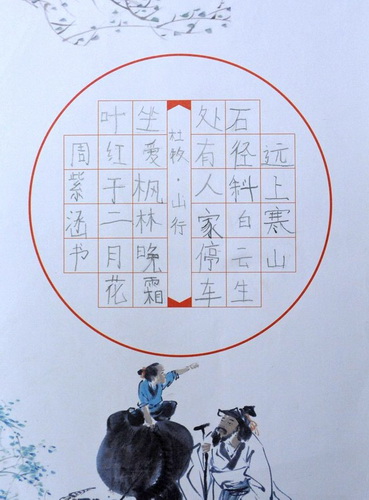 远上寒山
石径斜白云生
处有人家停车
杜牧·山行
坐愛枫林晚霜
叶红于二月花
周紫涵书